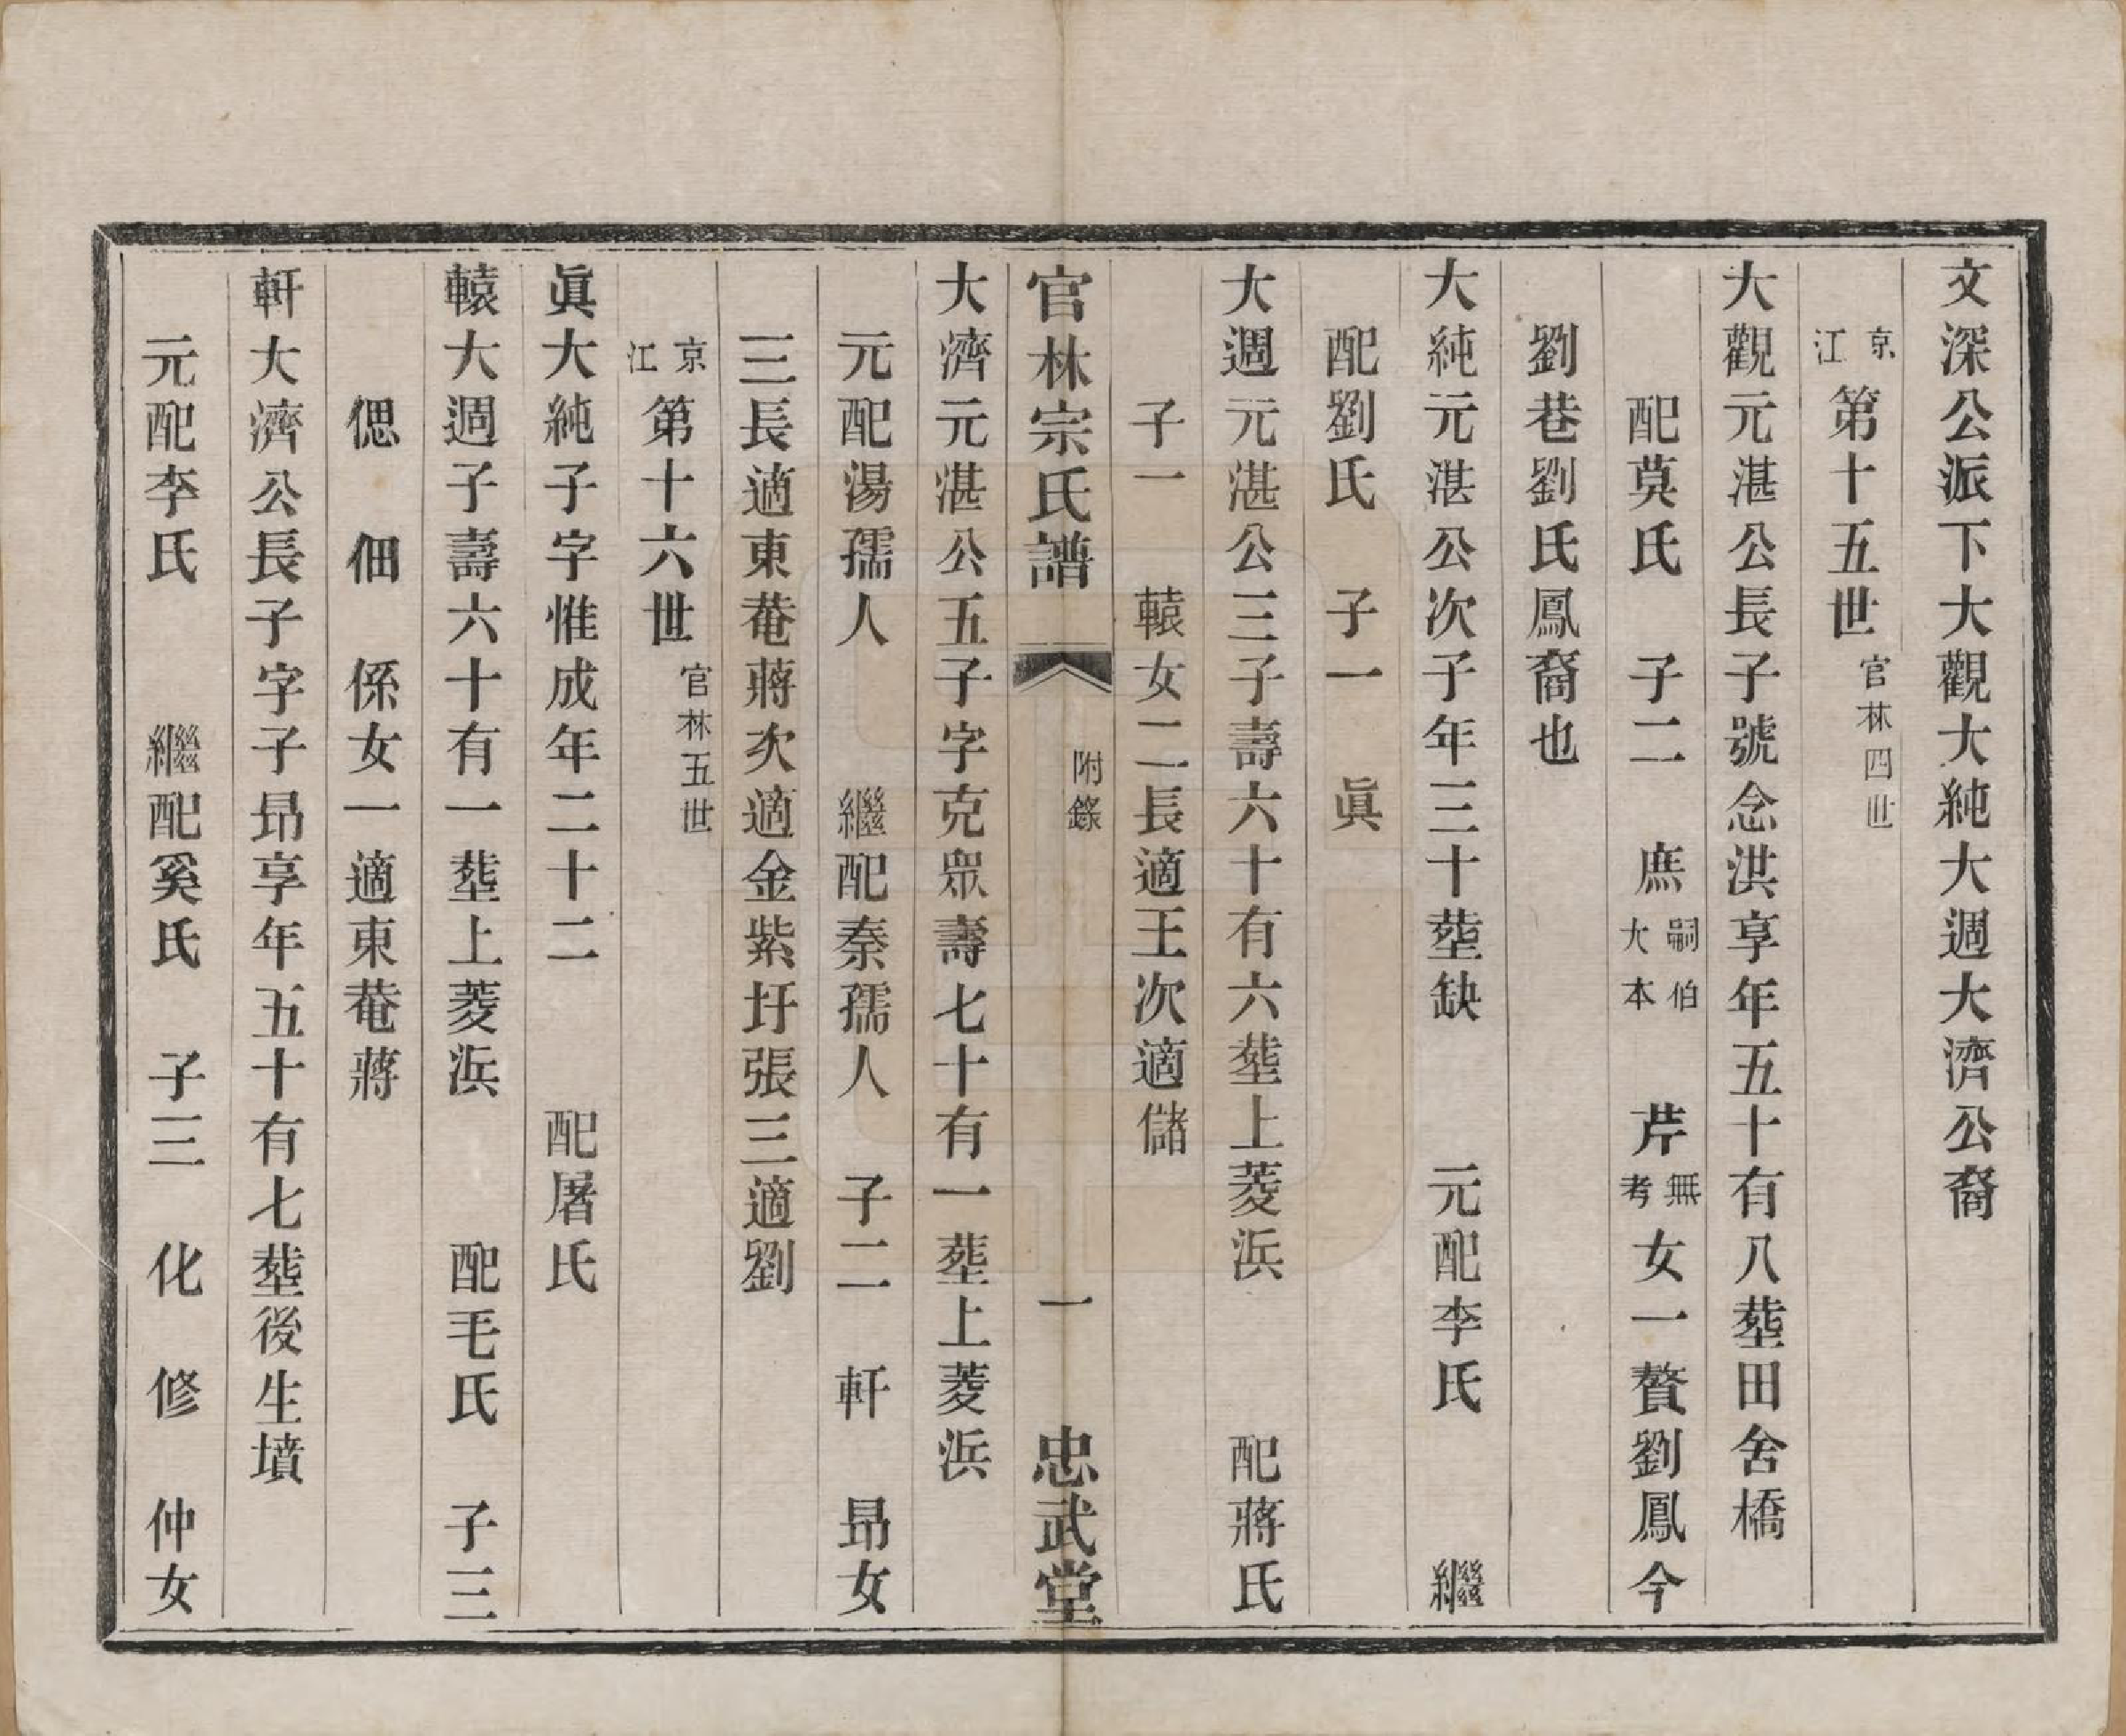 文深公派下大觀大純大週大濟公裔
京江第十五世官林四世
大觀元湛公長子號念洪享年五十有八塟田舍橋
配莫氏 子二 庶嗣伯大本 芹無考女一贅劉鳳今
劉巷劉氏鳳裔也
大純元湛公次子年三十塟缺 元配李氏 繼
配劉氏 子一 眞
大週元湛公三子壽六十有六塟上菱浜 配蔣氏
子一 轅女二長適王次適儲
官林宗氏譜 附錄 一 忠武堂
大濟元湛公五子字克衆壽七十有一塟上菱浜
元配湯孺人 繼配秦孺人 子二 軒 昻女
三長適東菴蔣次適金紫圩張三適劉
京江第十六世官林五世
眞大純子字惟成年二十二 配屠氏
轅大週子壽六十有一塟上菱浜 配毛氏 子三
偲 佃 係女一適東菴蔣
軒大濟公長子字子昻享年五十有七塟後生墳
元配李氏 繼配奚氏 子三 化 修 仲女